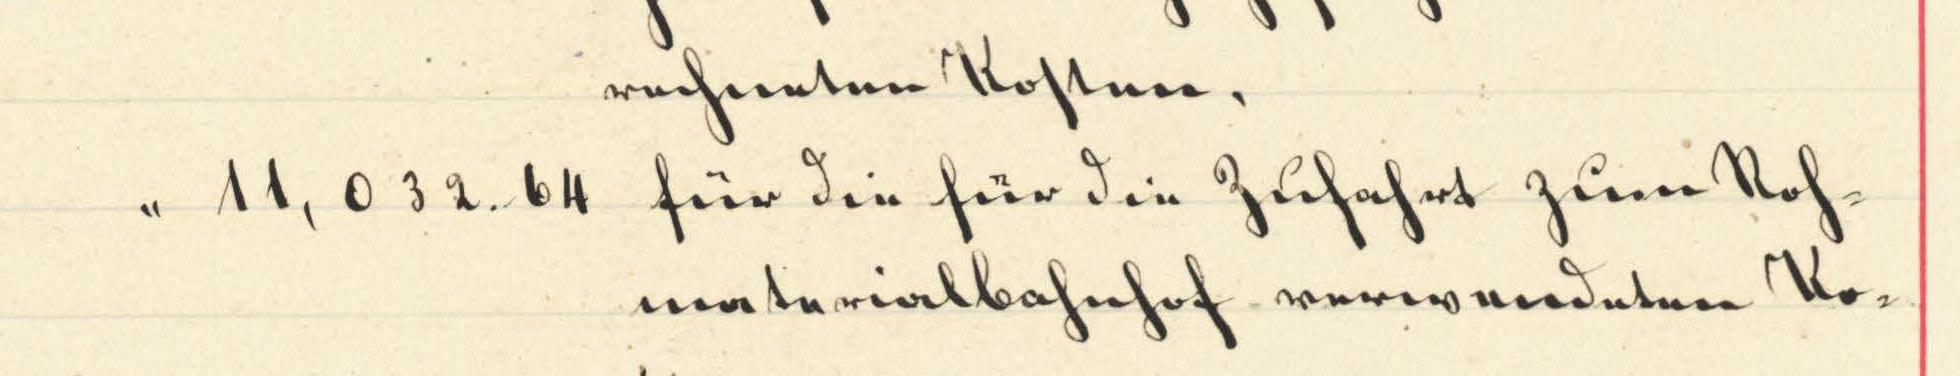 rechneten Kosten.
" 11,032.64 für die für die Zufahrt zum Roh-
materialbahnhof verwendeten Ko-